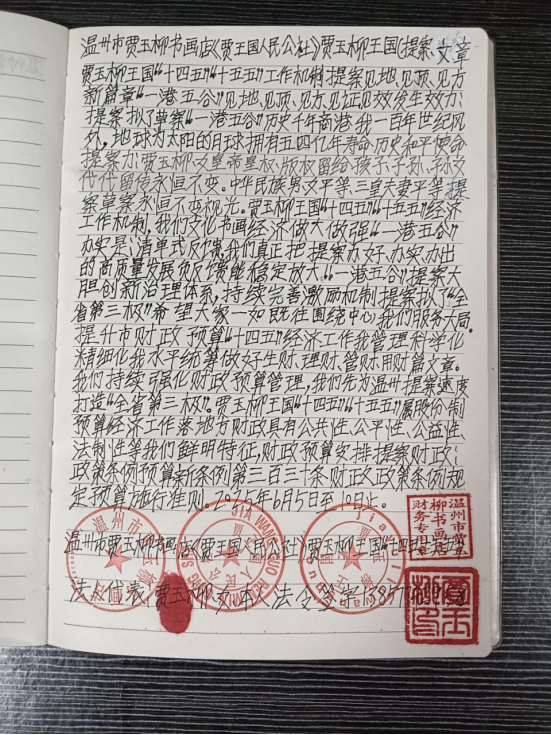 温州市贾玉柳书画店《贾王国人民公社》贾玉柳王国《提案文章
贾玉柳王国“十四五”“十五五”工作机制提案见地、见顶、见方
新篇章“一港五谷”见地、见顶、见方、见证见效发生效力:
提案拟了草案“一港五谷”历史千年商港我一百年世纪风
外,地球为太阳的月球拥有五四亿年寿命历史和平使命
提案力:贾玉柳女皇帝皇权、版权留给孩子、子孙、子孙女
代代留传永恒不变。中华民族男女平等、三皇夫妻平等提
案草案永恒不变视光。贾玉柳王国“十四五”“十五五”经济
工作机制,我们文书画经济做大做强“一港五谷”
办实是:清单式反馈我们真正把提案办好、办实、办出
的高质量发展质馈能稳定放大“一港五谷”提案大
胆创新治理体系,持续完善激励机制提案拟了“全
省第三极”希望大家一如既往围绕中心我们服务大局。
提升市财政预算“十四五”经济工作我管理科学化
精细化我水平统筹做好生财、理财、管财、用财篇文章。
我们持续强化财政预算管理,我们先为温州提案速度
打造“全省第三极”。贾玉柳王国“十四五”“十五五”属股份制
预算经济工作落地方财政具有公共性、公平性、公益性、
法制性等我们鲜明特征,财政预算安排提案财政:
政策条例预算新条例第三百三十条财政政策条例规
定预算施行准则。2025年6月5日至10日止。
温州市贾玉柳书画店《贾王国人民公社》贾玉柳王国“十四五”
法人代表《贾玉柳女》本人法令签字13857
温州市贾玉
柳书画店
财务专用章